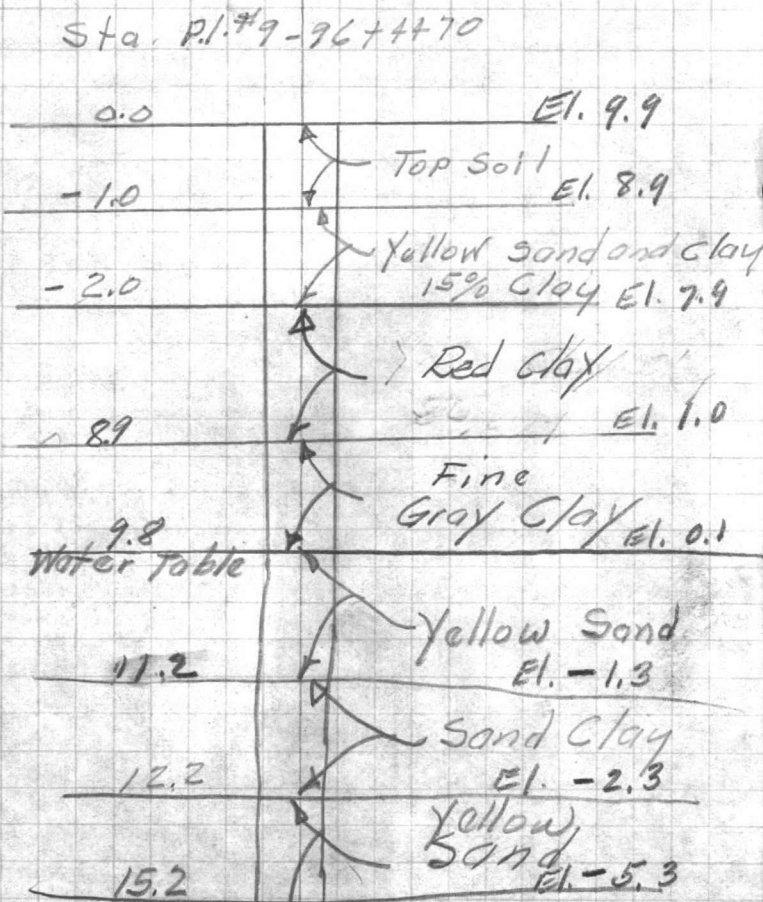 Sta. P.I.#9-96+4470
0.0 El. 9.9
Top Soil
-1.0 El. 8.9
Yellow Sand and Clay
15% Clay
-2.0 El. 7.9
Red Clay
8.9 El. 1.0
Fine
Gray Clay
9.8 El. 0.1
Water Table
Yellow Sand
11.2 El. -1.3
Sand Clay
12.2 El. -2.3
Yellow
Sand
15.2 El. -5.3